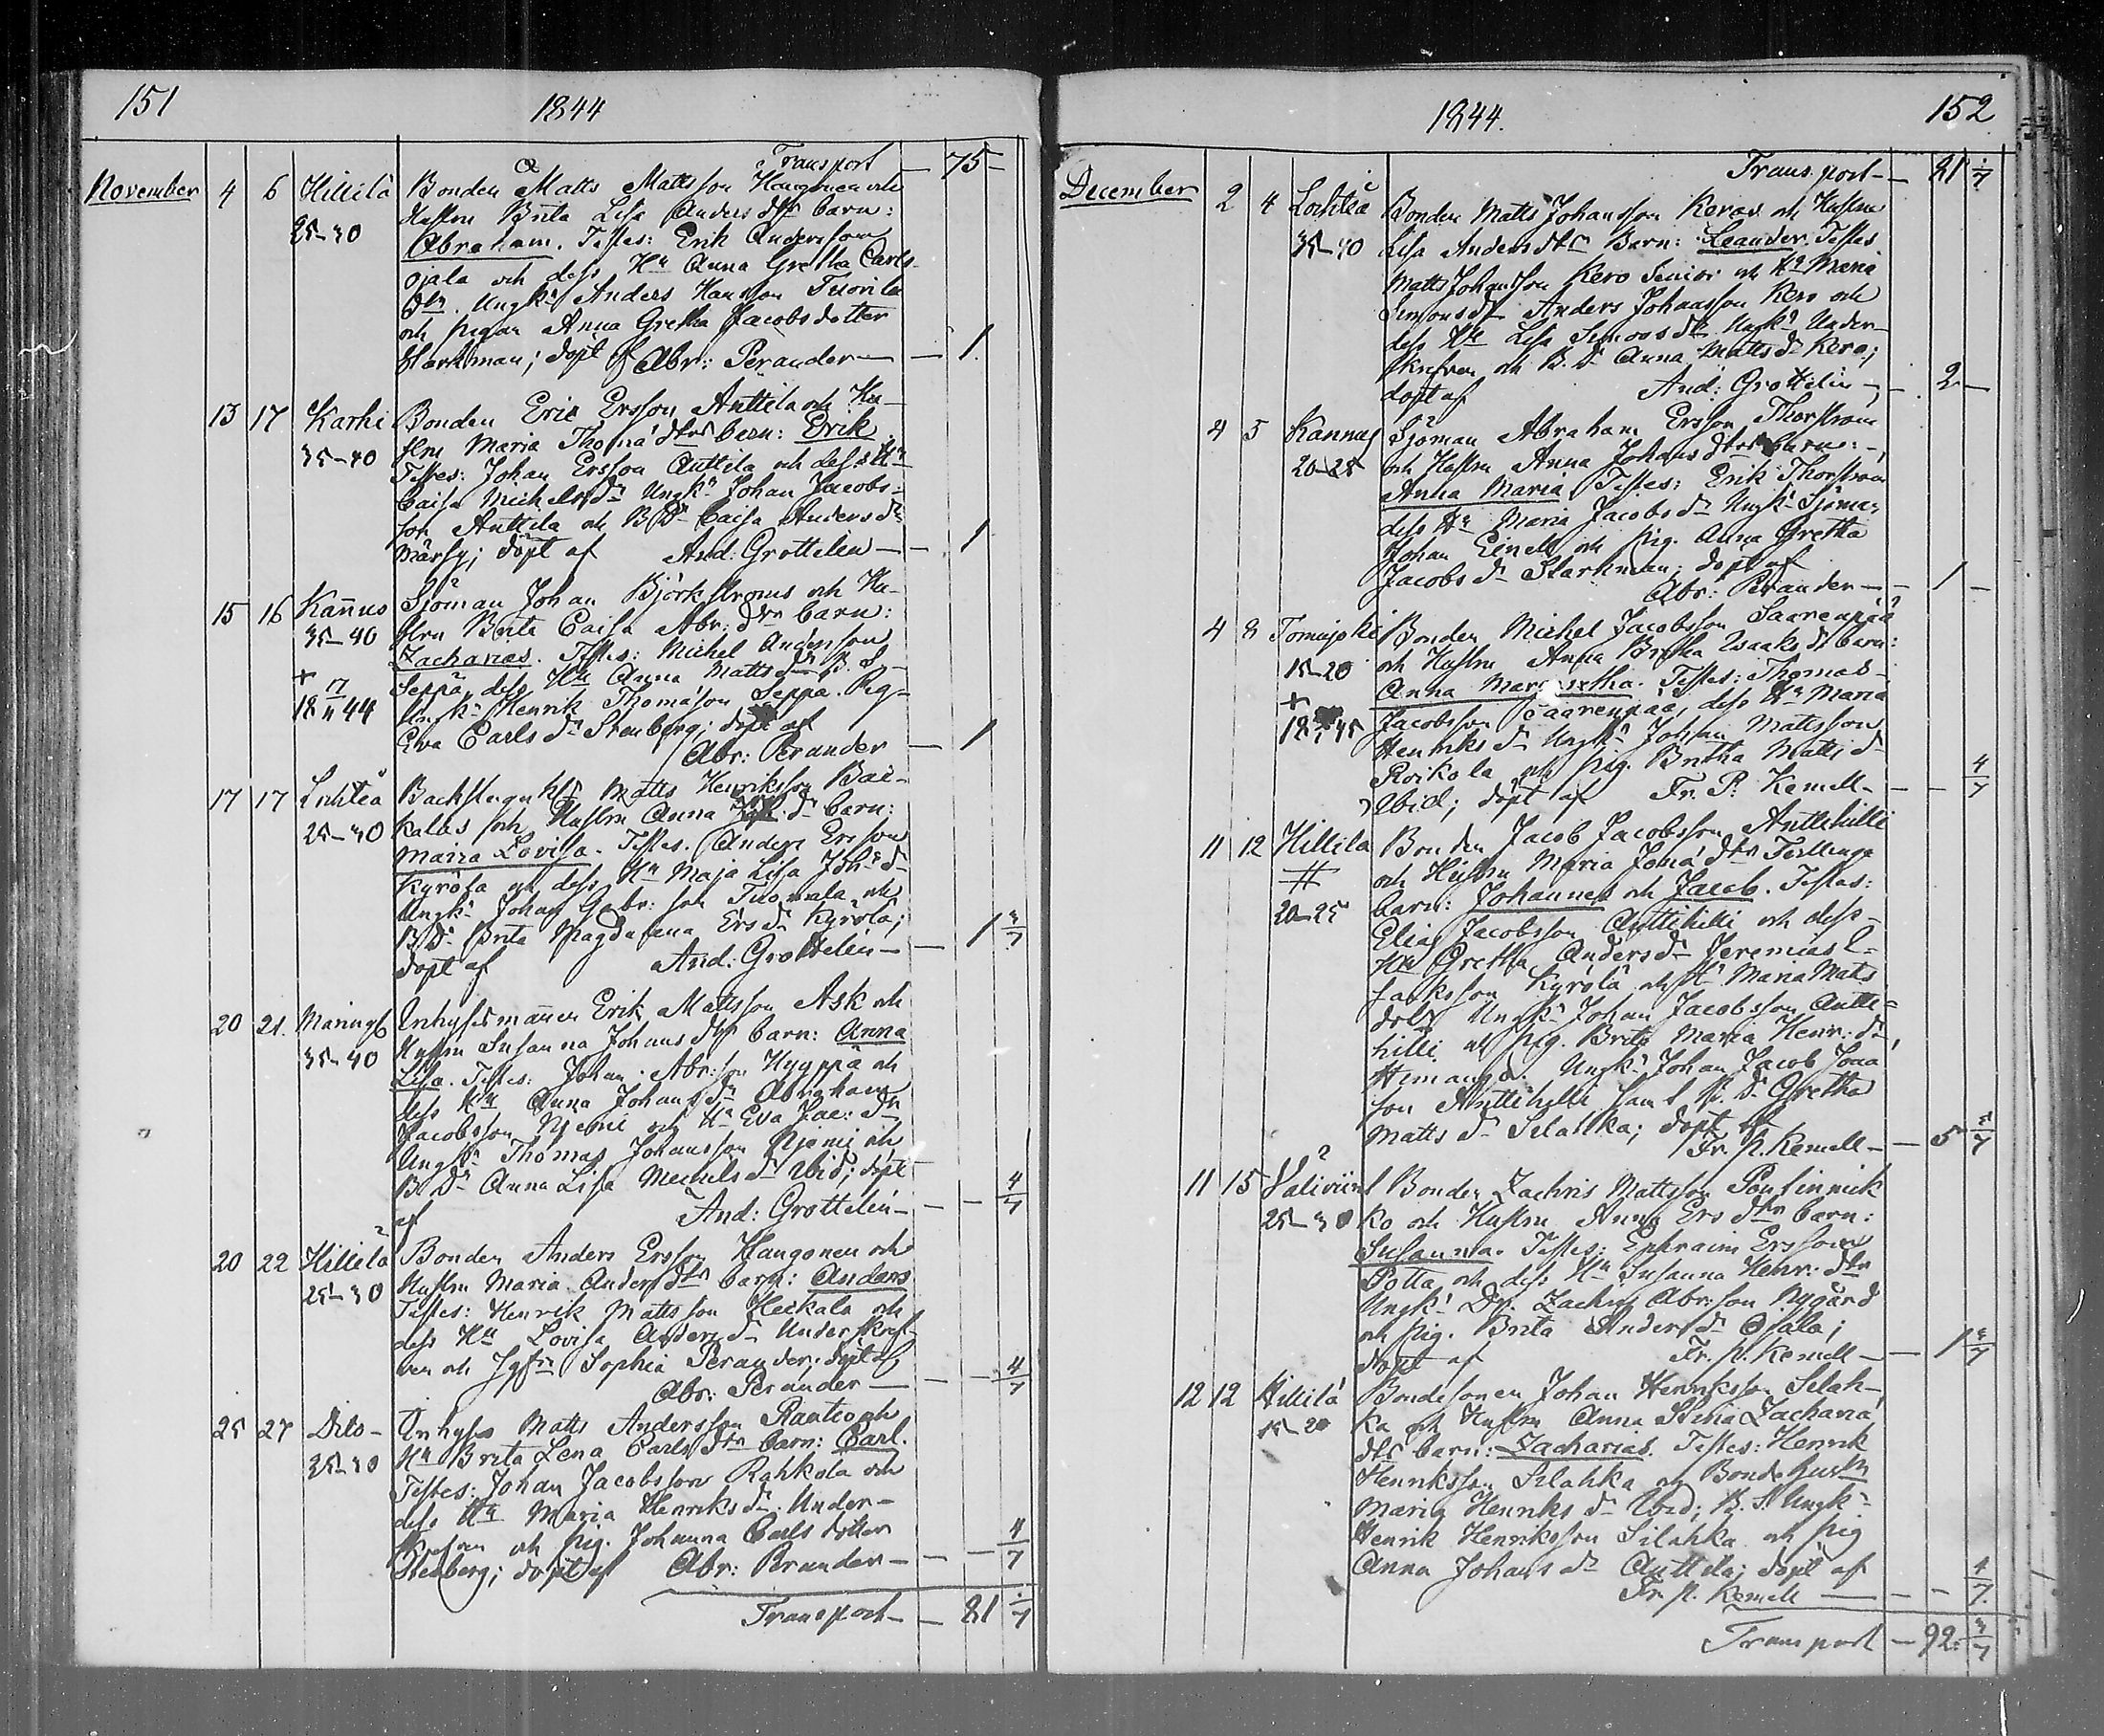 151
1844
Transport — 75 —
November 4 6 Hillilä Bonden Matts Mattsson Haugonen och
Hustru Brita Lisa Anders dtr barn:
25–30 Abraham. Testes: Erik Andersson
Ojala och dess Hu Anna Gretha Carls
dtr. Ungk: Anders Hansson Tuorila
och pigan Anna Gretha Jacobsdotter
Starkman; döpt af Abr: Perander — 1.
13 17 Karhi Bonden Eric Ersson Anttila och Hu-
35–40 stru Maria Thomæ dtrs barn: Erik
Testes: Johan Ersson Anttila och dess Hu
Caisa Michelsdr Ungk: Johan Jacobs-
son Anttila och B. Dr Caisa Anders dr
döpt af And: Grottelin — 1
15 16 Kannus Sjöman Johan Björkströms och Hu-
35–40 stru Brita Caisa Abr: dtr barn:
+ Zacharias. Testes: Michel Andersson
Seppä dess Hu Anna Mattsdr B. S.
18 7/11 44 Ungk: Henrik Thomasson Seppä. Pig-
Eva Carls dr Stenberg; döpt af
Abr: Perander — 1
17 17 Lochteå Backstuguhjs Matts Henriksson Bac-
25–30 kalas och Hustru Anna dr barn:
Maria Lovisa. Testes. Anders Ersson
Kyrölä och dess Hu Maja Lisa Joh: dr
Ungk: Johan Gabr: son Tuomala och
B. Dr Brita Magdalena Ers dr Kyrölä;
döpt af And: Grottelin — 1 3/7
20 21. Maringb Inhysesmannen Erik Mattsson Ask och
35–40 Hustru Susanna Johans dtr barn: Anna
Lisa. Testes: Johan Abr:son Hyyppä och
dess Hu Anna Johans dr Abraham
Jacobsson Njemi och Hu Eva Jac: dr
Ungk: Thomas Johansson Njemi och
B. Dr Anna Lisa Michels dr Ibid; döpt
af And: Grottelin — — 4/7
20 22 Hillilä Bonden Anders Ersson Haugonen och
25–30 Hustru Maria Anders dtr barn: Anders
Testes: Henrik Mattsson Heikala och
dess Hu Lovisa Anders dr Underskref-
ven och Jgfr Sophia Perander; döpt af
Abr: Perander — — 4/7
25 27 Dito — Inhyses Matts Andersson Rautio och
35–40 Hu Brita Lena Carls dtr barn: Carl.
Testes: Johan Jacobsson Rahkola och
dess Hu Maria Henriksdr. Under-
skrefven och pig. Johanna Carls dotter
Stenberg; döpt af Abr: Perander — — 4/7
Transport — 81 1/7
1844.
152
Transport — 81 1/7
December 2 4 Lochteå Bonden Matts Johansson Keros och Hustru
35–40 Lisa Anders dtrs Barn: Leander. Testes
Matts Johansson Kero Senior och Hu Maria
Simonsdr Anders Johansson Kero och
dess Hu Lisa Simons dr Ungk: Under-
skrefven och B. Dr Anna Matts dr Kero;
döpt af And: Grottelin — 2 —
4 5 Kannus Sjöman Abraham Ersson Thorström
20–25 och Hustru Anna Johans dtrs barn: —
Anna Maria. Testes: Erik Thorström
dess Hu Maria Jacobs dr Ungk: Sjöman
Johan och pig. Anna Gretha
Jacobs dr Starkman; döpt af
Abr: Perander — 1 —
4 8 Tomujoki Bonden Michel Jacobsson Saarenpää
15–20 och Hustru Anna Britha Isaaks dr barn:
+ Anna Margretha. Testes: Thomas
Jacobsson Saarenpää, dess Hu Maria
Henriks dr Ungk: Johan Mattsson
Roikola och pig. Britha Matts dr
Ibid; döpt af Fr. P. Kemell — — 4/7
11 12 Hillilä Bonden Jacob Jacobsson Anttihilli
# och Hustru Maria Jona dtrs
20–25 barn: Johannes och Jacob. Testes:
Elias Jacobsson Anttihilli och dess
Hu Gretha Anders dr Jeremias I-
saksson Kyrölä och Hu Maria Matts
dotr Ungk: Johan Jacobsson Antti-
hilli och pig. Brita Maria Henr. dr
Himanga. Ungk: Johan Jacob Jona
son Anttihilli samt B. Dr Gretha
Matts dr Silahka; döpt af
Fr. P. Kemell — 5
11 15 Bonden Zachris Mattsson
25–30 ko och Hustru Anna Ers dtr barn:
Susanna. Testes: Ephraim Ersson
Potta och dess Hu Susanna Henr: dtr
Ungk: Zachris Abr:son Nygård
och pig. Brita Anders dr Ojala;
döpt af Fr. P. Kemell — 1 3/7
12 12 Hillilä Bondesonen Johan Henriksson Silah-
15–20 ka och Hustru Anna Stina Zacharia
dtrs barn: Zacharias. Testes: Henrik
Henriksson Silahka och Bondehustr
Maria Henriks dr Ibid; B. S. Ungk:
Henrik Henriksson Silahka och pig
Anna Johans dr Anttila; döpt af
Fr. P. Kemell — — 4/7.
Transport — 92 3/7